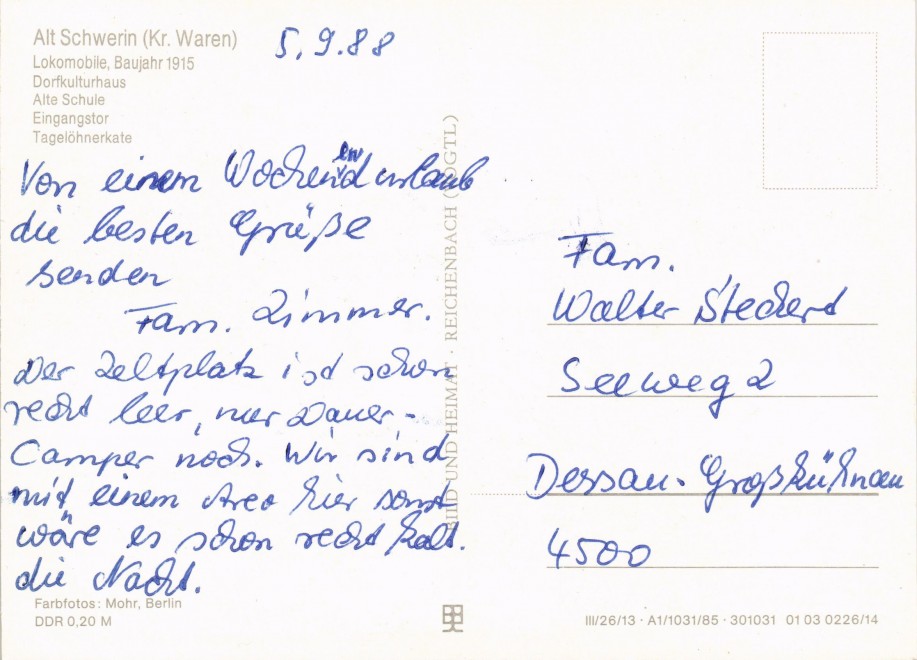 Alt Schwerin (Kr. Waren)
Lokomobile, Baujahr 1915
Dorfkulturhaus
Alte Schule
Eingangstor
Tagelöhnerkate
5.9.88
Von einem Wochenendurlaub
die besten Grüße
senden
Fam. Zimmer.
Der Zeltplatz ist schon
recht leer, nur Dauer-
Camper noch. Wir sind
mit einem hier sonst
wäre es schon recht kalt.
die Nacht.
Farbfotos: Mohr, Berlin
DDR 0,20 M
BILD UND HEIMAT · REICHENBACH (VOGTL)
Fam.
Walter Steckert
Seeweg 2
Dessau-Großkühnau
4500
III/26/13 · A1/1031/85 · 301031 01 03 0226/14